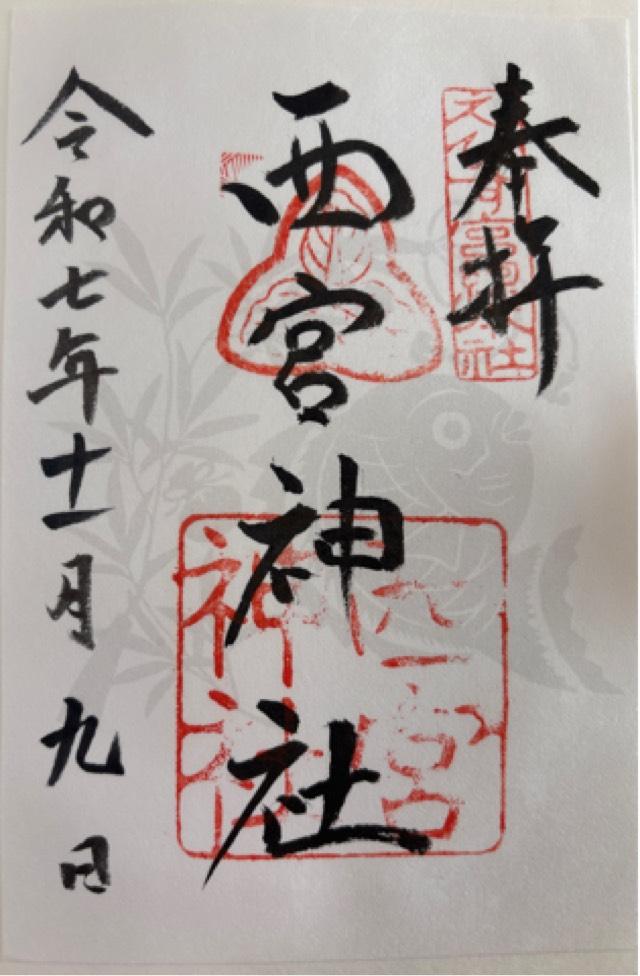 奉拝
西宮神社
令和七年十一月九日
西宮
神社